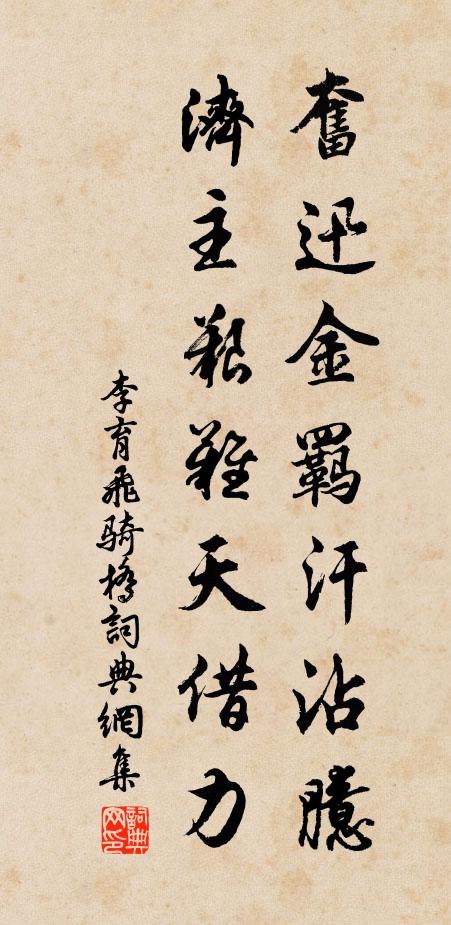 奮迅金羁汗沾臆
濟主艱難天借力
李育飛骑橋詞典網集
詞典网印